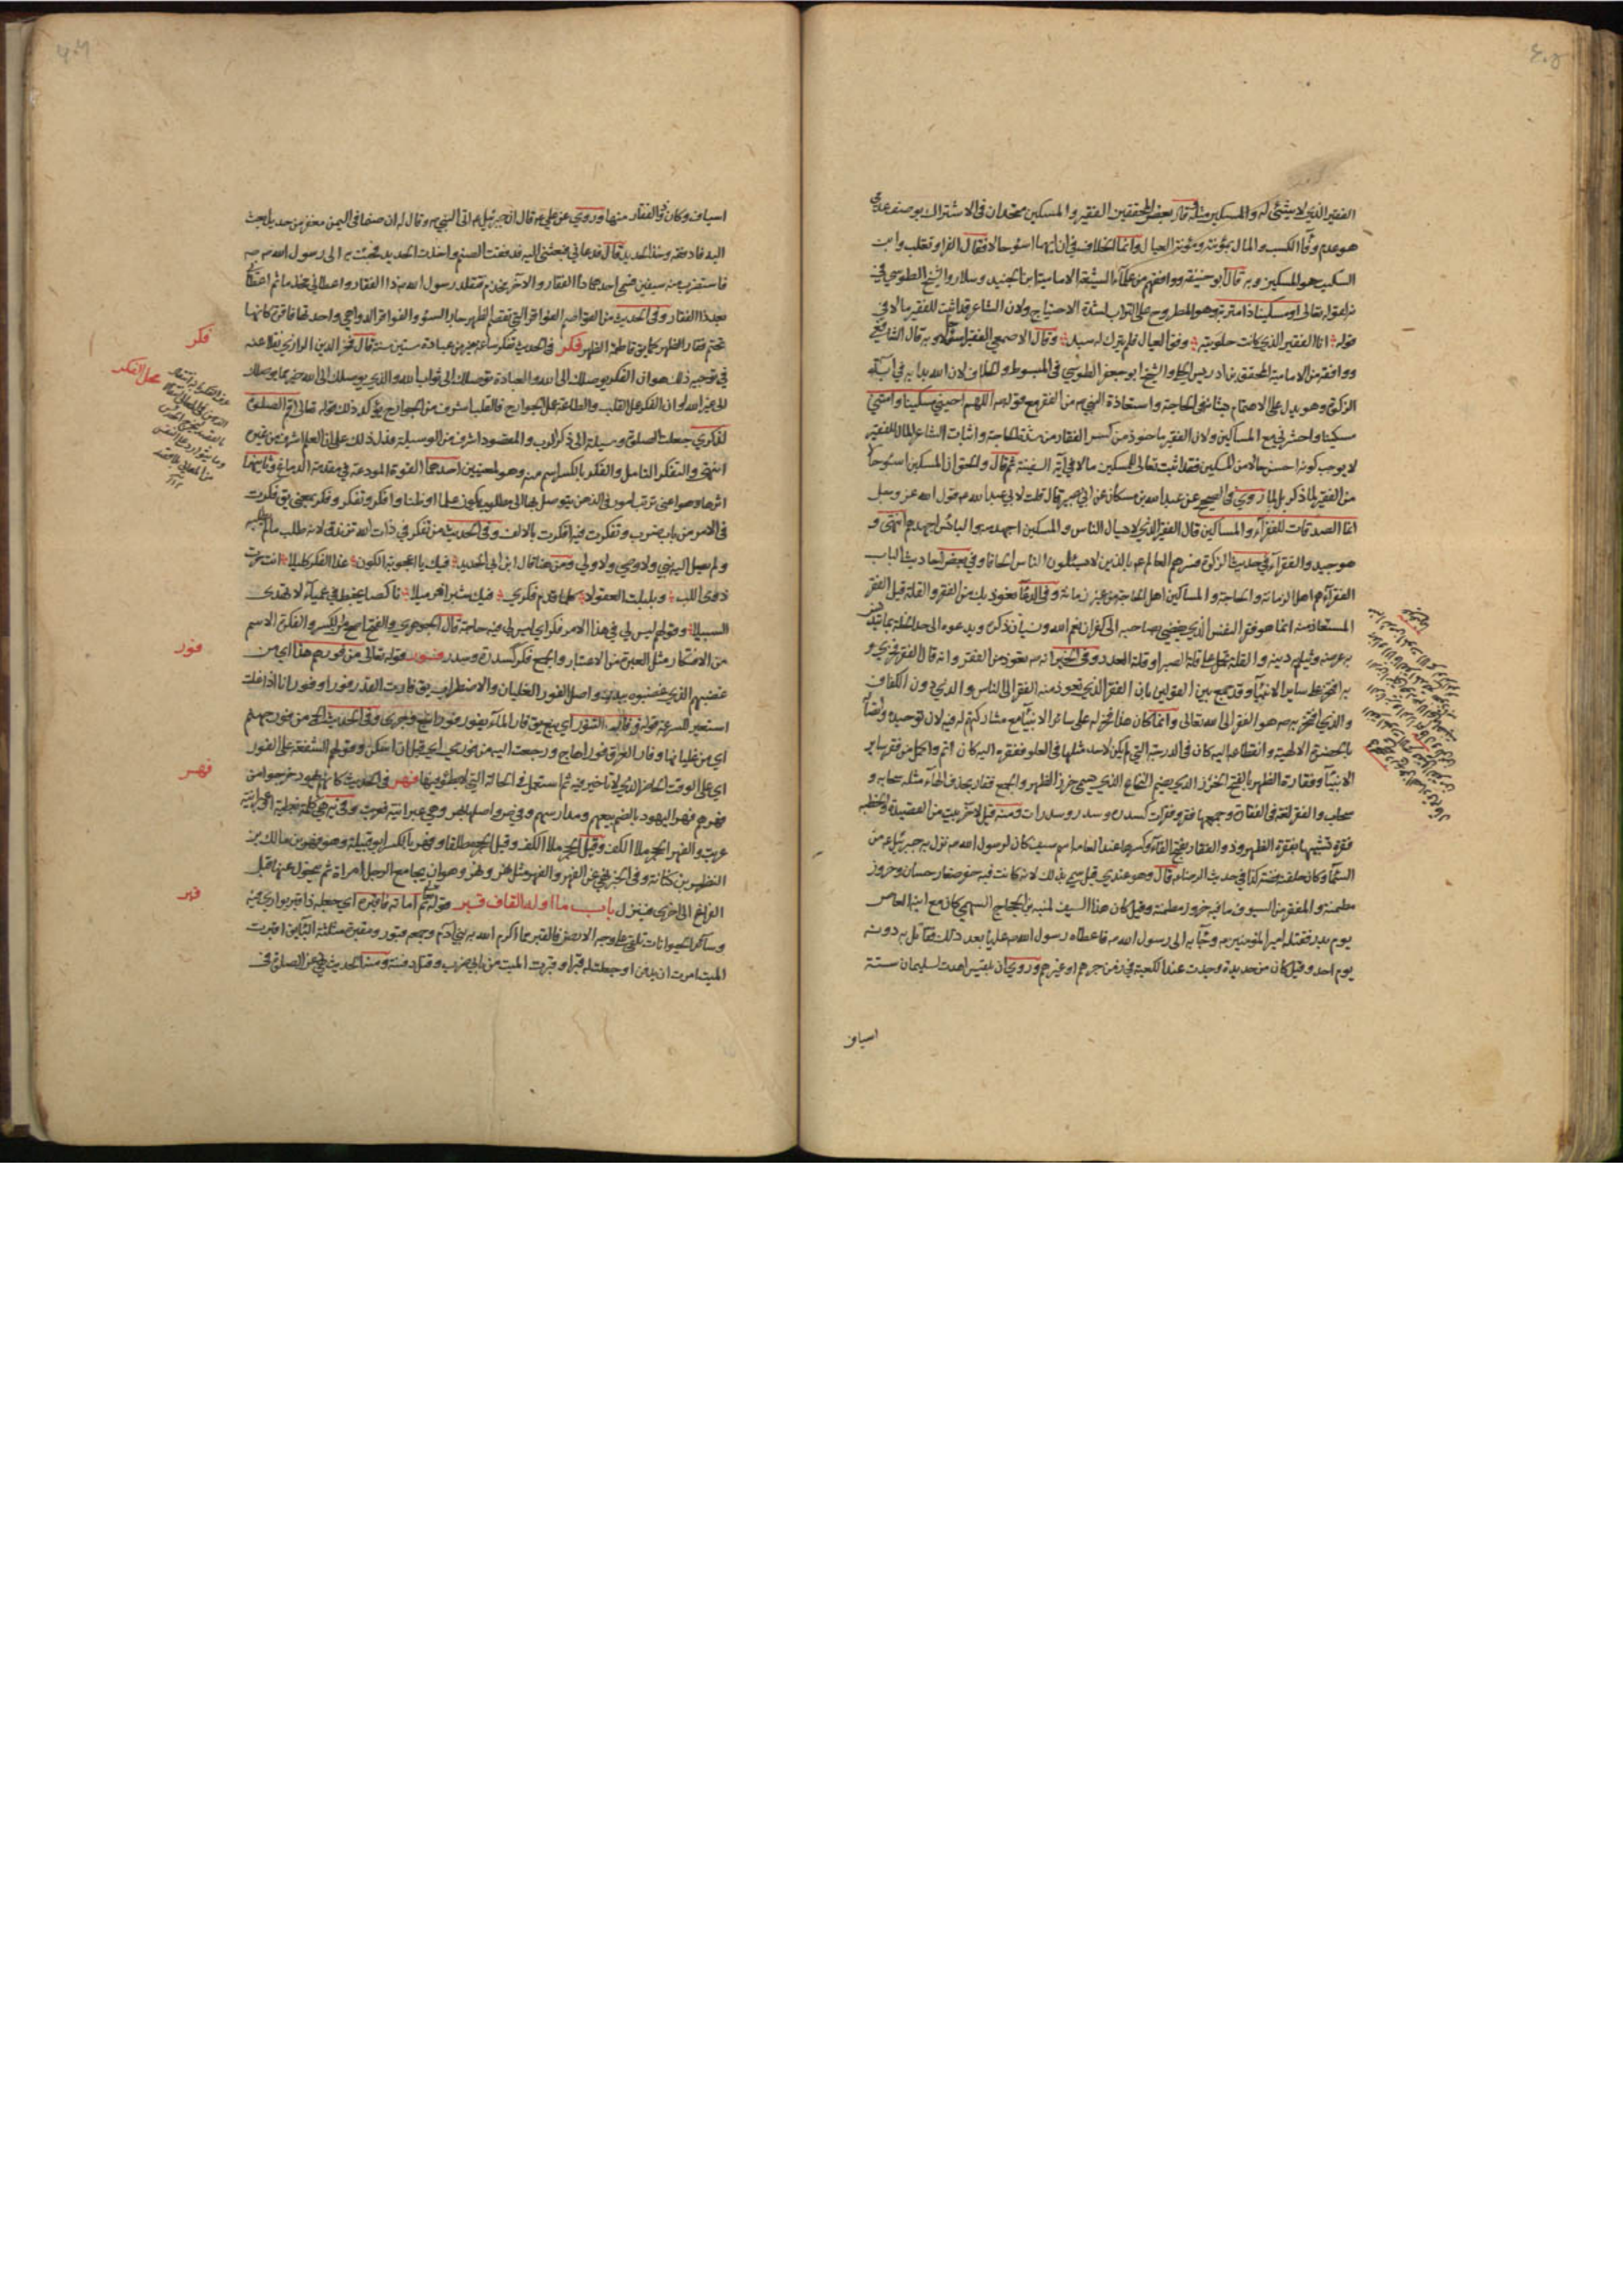 ٤٠٥
الفقير الذي لا شئ له والمسكين مثله قال بعض المحققين الفقير والمسكين متحدان في الاشتراك بوصف عدمي
هو عدم وفاء الكسب والمال بمؤنته ومؤنة العيال وانما الخلاف في ان ايهما اسوء حالا فقال الفراء وثعلب وابن
السكيت هو المسكين وبه قال ابو حنيفة ووافقهم من علماء الشيعة الامامية ابن الجنيد وسلار والشيخ الطوسي في
لقوله تعالى او مسكينا ذا متربة وهو المطروح على التراب لشدة الاحتياج ولان الشاعر قد اثبت للفقير مالا في
قوله اما الفقير الذي كانت حلوبته وفق العيال فلم يترك له سبد وقال الاصمعي الفقير اسوء حالا وبه قال الشافعي
ووافقه من الامامية المحقق بن ادريس الحلي والشيخ ابو جعفر الطوسي في المبسوط والخلاف لان الله بدا به في آية
الزكوة وهو يدل على الاهتمام بشأنه في الحاجة واستعاذة النبي ص من الفقر مع قوله ص اللهم احيني مسكينا وامتني
مسكينا واحشرني مع المساكين ولان الفقير ماخوذ من كسر الفقار من شدة الحاجة واثبات الشاعر المال للفقير
لا يوجب كونه احسن حالا من المسكين فقد اثبت تعالى للمسكين مالا في آية السفينة ثم قال والحق ان المسكين اسوء حالا
من الفقير لما ذكر بل لما روي في الصحيح عن عبد الله بن مسكان عن ابي بصير قال قلت لابي عبد الله ع قول الله عز وجل
انما الصدقات للفقراء والمساكين قال الفقير الذي لا يسال الناس والمسكين اجهد منه والبائس اجهدهم انتهى و
هو جيد والفقراء في حديث الزكوة فسرهم العالم ع بالذين لا يسئلون الناس الحافا وفي بعض احاديث الباب
الفقراء هم اهل الزمانة والحاجة والمساكين اهل الحاجة من غير زمانة وفي الدعاء نعوذ بك من الفقر والقلة قيل الفقر
المستعاذ منه انما هو فقر النفس الذي يفضي بصاحبه الى كفران نعم الله ونسيان ذكره ويدعوه الى سد الخلة بما يتدنس
به عرضه ويثلم دينه والقلة تحمل على قلة الصبر او قلة العدد وفي الخبر انه ص تعوذ من الفقر وانه قال الفقر فخري و
به افتخر على سائر الانبياء وقد جمع بين القولين بان الفقر الذي تعوذ منه الفقر الى الناس والذي دون الكفاف
والذي افتخر به ص هو الفقر الى الله تعالى وانما كان هذا فخرا له على سائر الانبياء مع مشاركتهم له فيه لان توحيده واتصاله
بالحضرة الالهية وانقطاعه اليه كان في الدرجة التي لم يكن لاحد مثلها في العلو ففقره اليه كان اتم واكمل من فقر سائر
الانبياء وفقارة الظهر بالفتح الخرز الذي يضم النخاع الذي يسمى خرز الظهر والجمع فقار بحذف الهاء مثل سحابة و
سحاب والفقرة لغة في الفقارة وجمعها فقر وفقرات كسدرة وسدر وسدرات ومنه قيل لاخر بيت من القصيدة والخطبة
فقرة تشبيها بفقرة الظهر وذو الفقار بفتح الفاء وكسرها عند العامة اسم سيف كان لرسول الله ص نزل به جبرئيل ع من
السماء وكان حلقته فضة كذا في حديث الرضا ع قال وهو عندي قيل سمي بذلك لانه كانت فيه حفر صغار حسان وخروز
مطمئنة والمفقر من السيوف ما فيه خروز مطمئنة وقيل كان هذا السيف لمنبه بن الحجاج السهمي كان مع ابنه العاص
يوم بدر فقتله امير المؤمنين ع وجاء به الى رسول الله ص فاعطاه رسول الله ص عليا بعد ذلك فقاتل به دونه
يوم احد وقيل كان من حديدة وجدت عند الكعبة في زمن جرهم او غيرهم وروي ان بلقيس اهدت لسليمان ستة
اسياف
٤٠٦
اسياف وكان ذو الفقار منها وروي عن علي ع قال ان جبرئيل ع اتى النبي ص وقال له ان صنما في اليمن مغفر من حديد ابعث
اليه فادققه وخذ الحديد قال فدعاني فبعثني اليه فدققت الصنم واخذت الحديد فجئت به الى رسول الله ص
فاستضرب منه سيفين فسمى احدهما ذا الفقار والاخر مخذم فتقلد رسول الله ص ذا الفقار واعطاني مخذما ثم اعطاني
بعد ذا الفقار وفي الحديث من القواصم الفواقر التي تقصم الظهر جار السوء والفواقر الدواهي واحدتها فاقرة كانها
تحطم فقار الظهر كما يق قاصمة الظهر فكر في الحديث تفكر ساعة خير من عبادة ستين سنة قال فخر الدين الرازي نقلا عنه
في توجيه ذلك هو ان الفكر يوصلك الى الله والعبادة توصلك الى ثواب الله والذي يوصلك الى الله خير مما يوصلك
الى غير الله او ان الفكر عمل القلب والطاعة عمل الجوارح فالقلب اشرف من الجوارح يؤكد ذلك قوله تعالى اقم الصلوة
لذكري جعلت الصلوة وسيلة الى ذكر الرب والمقصود اشرف من الوسيلة فدل ذلك على ان العلم اشرف من غيره
انتهى والتفكر التامل والفكر بالكسر اسم منه وهو لمعنيين احدهما القوة المودعة في مقدمة الدماغ وثانيهما
اثرها وهو اعني ترتيب امور في الذهن يتوصل بها الى مطلوب يكون علما او ظنا وافكر وتفكر وفكر بمعنى يق فكرت
في الامر من باب ضرب وتفكرت فيه وافكرت بالالف وفي الحديث من تفكر في ذات الله تزندق لانه طلب ما لم يطلبه
ولم يصل اليه نبي ولا وصي ولا ولي ومن هنا قال ابن ابي الحديد فيك يا اعجوبة الكون غدا الفكر كليلا انت حيرت
ذوي اللب وبلبلت العقولا كلما قدم فكري فيك شبرا فر ميلا ناكصا يخبط في عمياء لا يهدى
السبيلا وقولهم ليس لي في هذا الامر فكر اي ليس لي فيه حاجة قال الجوهري والفتح افصح من الكسر والفكرة الاسم
من الافتكار مثل العبرة من الاعتبار والجمع فكر كسدرة وسدر فور قوله تعالى من فورهم هذا اي من
غضبهم الذي غضبوه ببدر واصل الفور الغليان والاضطراب يق فارت القدر فورا وفورانا اذا غلت
استعير للسرعة قوله وفار التنور اي نبع يق فار الماء يفور فورا نبع وجرى وفي الحديث الحمى من فور جهنم
اي من غليانها وفار العرق فورا هاج ورجعت اليه من فوري اي قبل ان اسكن وقولهم الشفعة على الفور
اي على الوقت الحاضر الذي لا تاخير فيه ثم استعمل في الحالة التي لا بطؤ فيها فهر في الحديث كانهم يهود خرجوا من
فهرهم فهر اليهود بالضم بيعهم ومدارسهم
عربت والفهر الحجر ملأ الكف وقيل الحجر مطلقا وفهر بالكسر ابو قبيلة وهو فهر بن مالك بن
النضر بن كنانة وفي الخبر نهى عن الفهر والفهر مثل نهر ونهر وهو ان يجامع الرجل امراة ثم يتحول عنها قبل
الفراغ الى اخرى فينزل باب ما اوله القاف قبر قوله ثم اماته فاقبره اي جعله ذا قبر يوارى فيه
وسائر الحيوانات تلقى على وجه الارض فالقبر مما اكرم الله به بني آدم وجمعه قبور ومقبرة مثلثة الباء
الميت امرت ان يدفن او جعلت له قبرا وقبرت الميت من بابي ضرب وقتل دفنته ومنه الحديث نهى عن الصلوة في
فكر
محل الفكر
فور
فهر
قبر